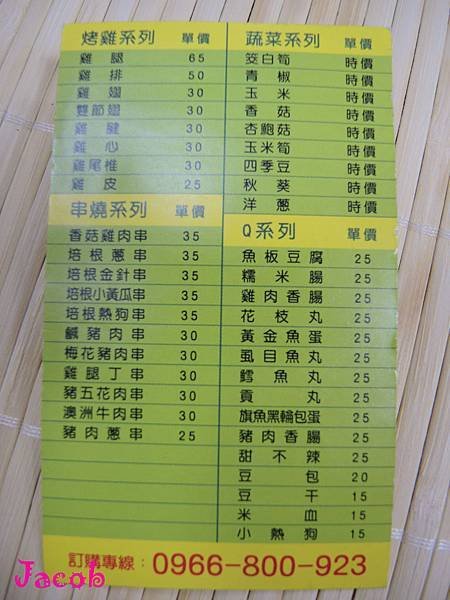 烤雞系列 單價
雞腿 65
雞排 50
雞翅 30
雙節翅 30
雞腱 30
雞心 30
雞尾椎 30
雞皮 25
串燒系列 單價
香菇雞肉串 35
培根蔥串 35
培根金針串 35
培根小黃瓜串 35
培根熱狗串 35
鹹豬肉串 30
梅花豬肉串 30
雞腿丁串 30
豬五花肉串 30
澳洲牛肉串 30
豬肉蔥串 25
蔬菜系列 單價
筊白筍 時價
青椒 時價
玉米 時價
香菇 時價
杏鮑菇 時價
玉米筍 時價
四季豆 時價
秋葵 時價
洋蔥 時價
Q系列 單價
魚板豆腐 25
糯米腸 25
雞肉香腸 25
花枝丸 25
黃金魚蛋 25
虱目魚丸 25
鱈魚丸 25
貢丸 25
旗魚黑輪包蛋 25
豬肉香腸 25
甜不辣 25
豆包 20
豆干 15
米血 15
小熱狗 15
訂購專線：0966-800-923
Jacob